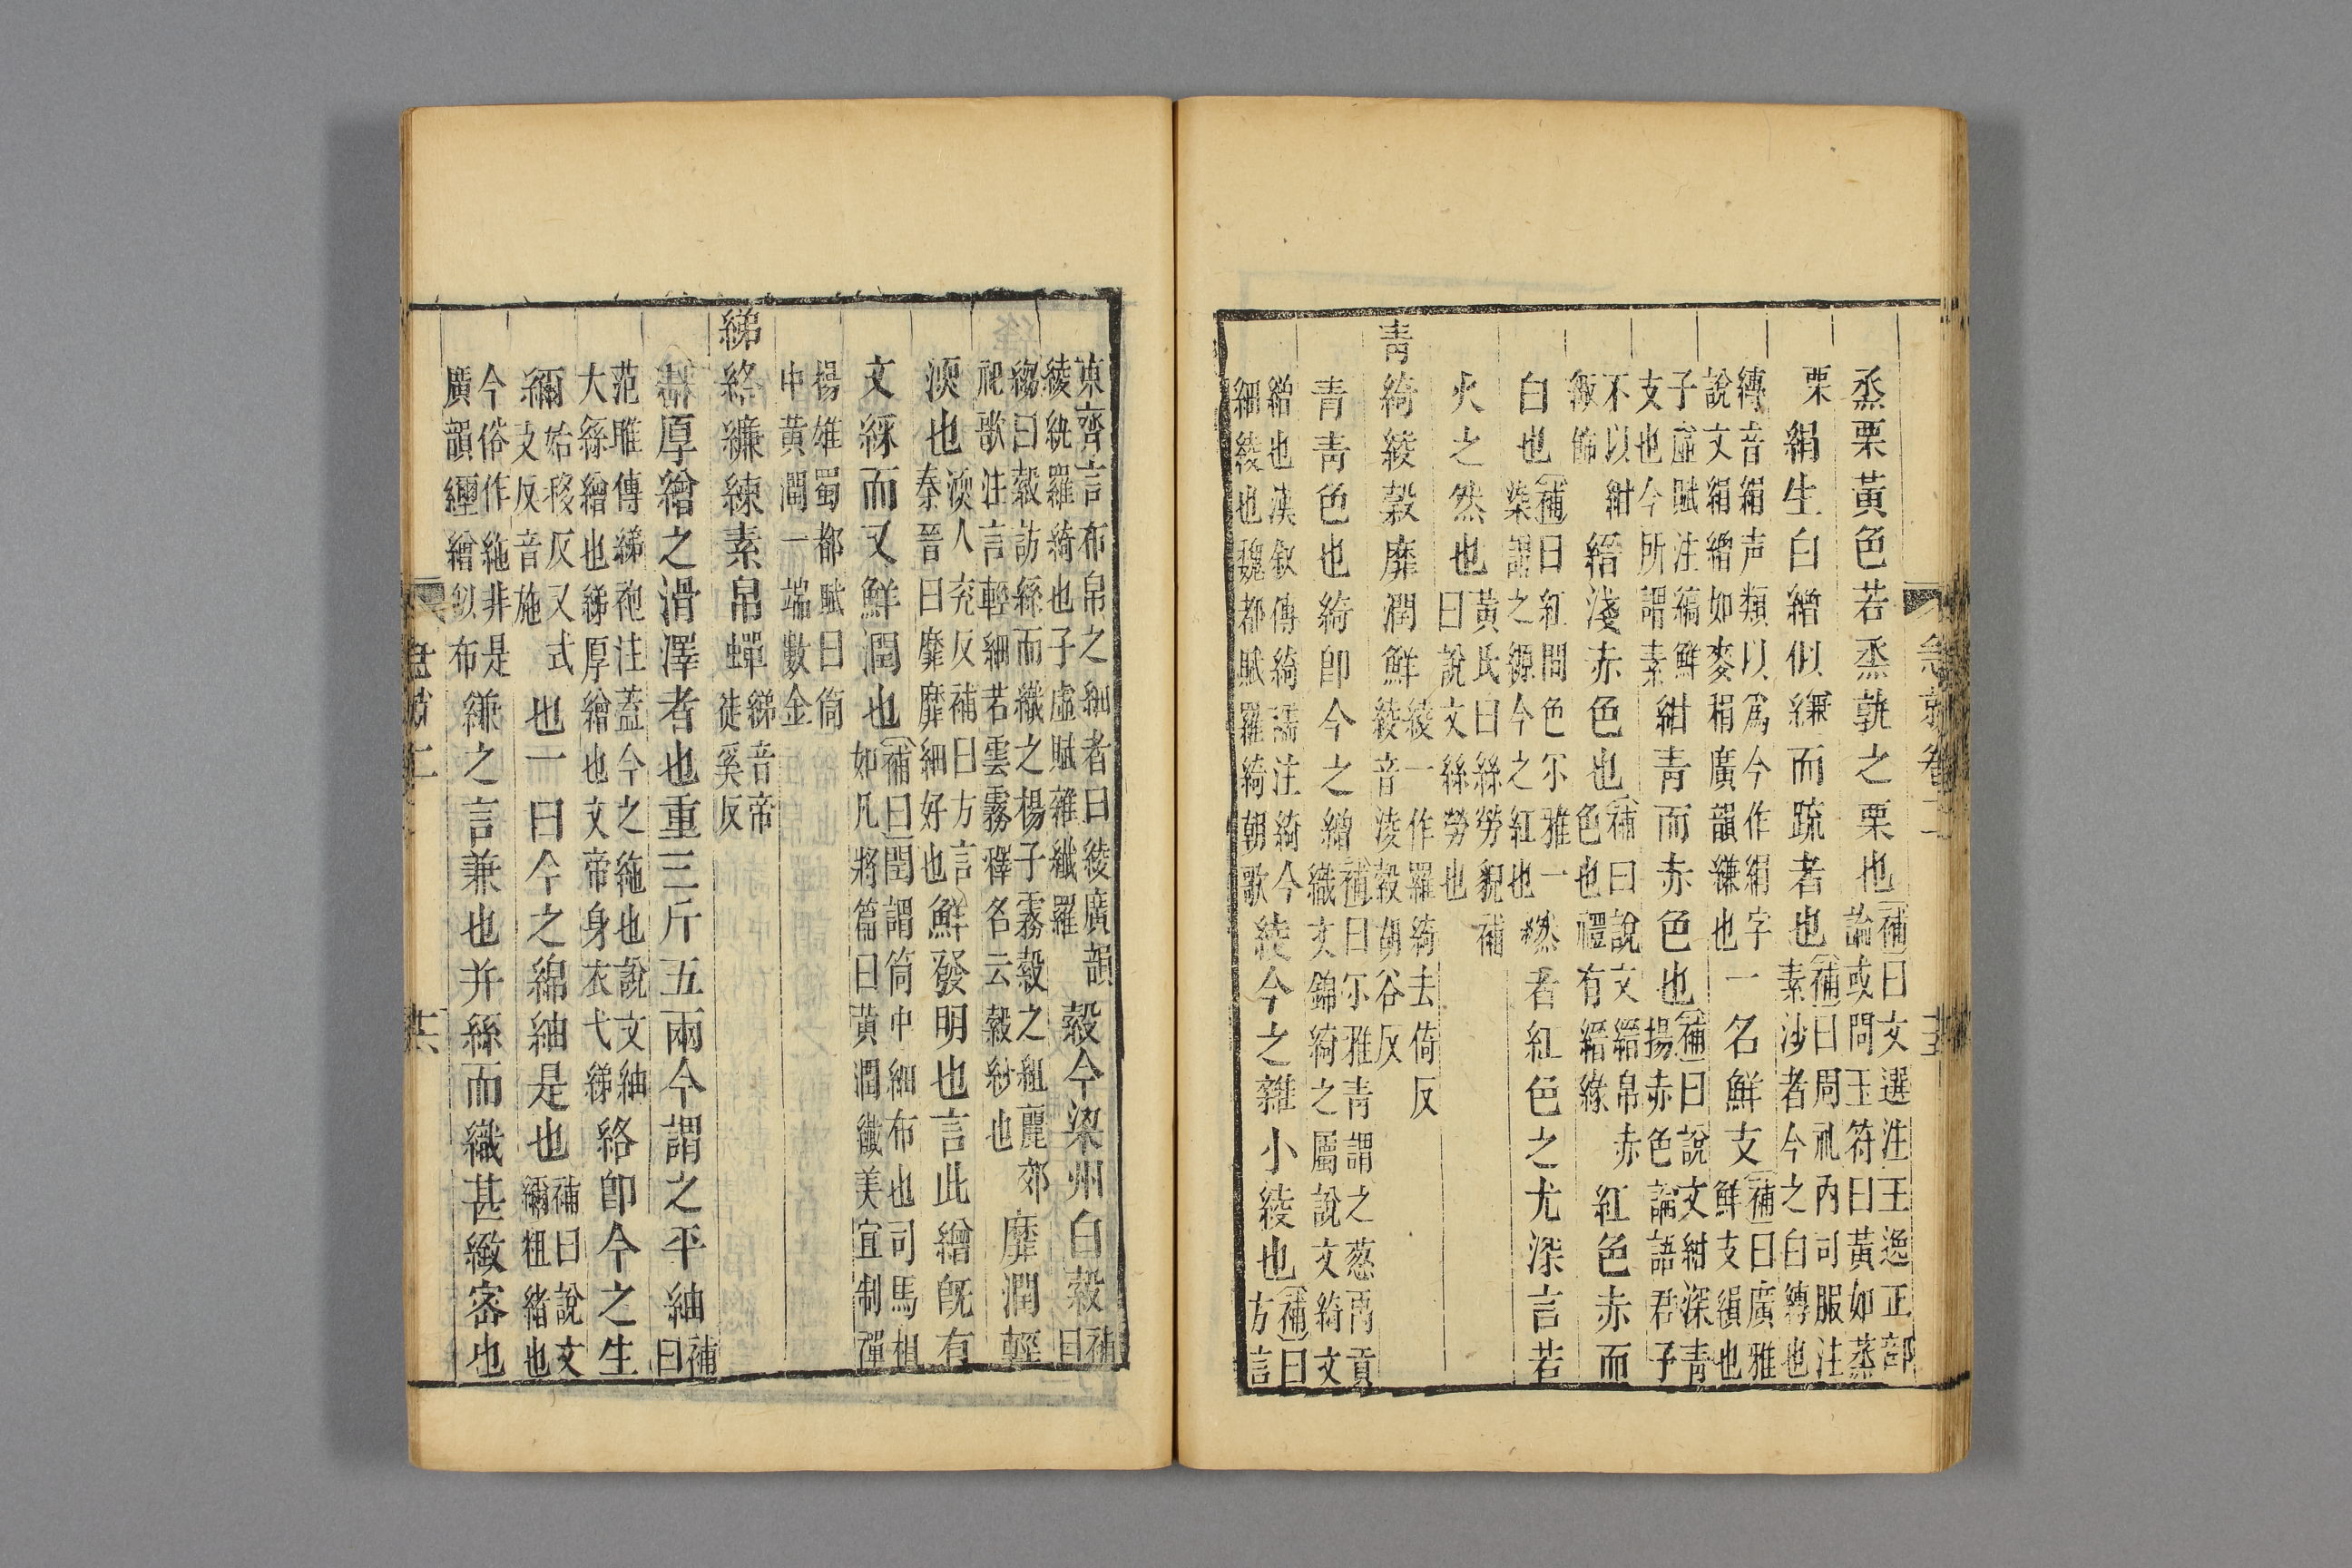 急就卷二
烝栗黃色若烝孰之栗也補曰文選注王逸正部論或問玉符曰黃如蒸
栗絹生白繒似縑而疏者也補曰周礼內司服注素沙者今之白縛也
縳音絹声類以爲今作絹字說文絹繒如麥稍廣韻縑也一名鮮支補曰廣雅鮮支縜也
子虛賦注縞鮮支也今所謂素紺青而赤色也補曰說文紺深青揚赤色論語君子
不以紺緅飾縉淺赤色也補曰說文縉帛赤色也禮有縉緣紅色赤而
白也補曰紅間色尔雅一染謂之縓今之紅也繎者紅色之尤深言若
火之然也黃氏曰絲勞貌補曰說文絲勞也
青綺綾縠靡潤鮮綾一作羅綺去倚反綾音淩縠胡谷反
青青色也綺即今之繒補曰尔雅青謂之葱禹貢織文錦綺之屬說文綺文
繒也漢叙傳綺襦注綺今細綾也魏都賦羅綺朝歌綾今之雜小綾也補曰方言
東齊言布帛之細者曰綾廣韻綾紈羅綺也子虛賦雜纖羅縠今梁州白縠補曰
縐曰縠訪絲而織之楊子霧縠之組麗郊祀歌注言輕細若雲霧釋名云縠紗也靡潤輕
渜也渜人兖反補曰方言秦晉曰靡靡細好也鮮發明也言此繒旣有
文綵而又鮮潤也補曰閏謂筒中細布也司馬相如凡將篇曰黃潤纖美宜制襌
楊雄蜀都賦曰筒中黃潤一端數金
綈絡縑練素帛蟬綈音帝徒奚反
綈厚繒之滑澤者也重三斤五兩今謂之平紬補曰
范雎傳綈袍注蓋今之絁也說文紬大絲繒也綈厚繒也文帝身衣弋綈絡即今之生
䌤始移反又式支反音施也一曰今之綿紬是也補曰說文䌤粗緒也
今俗作絁非是廣韻纆繒似布縑之言兼也并絲而織甚緻密也